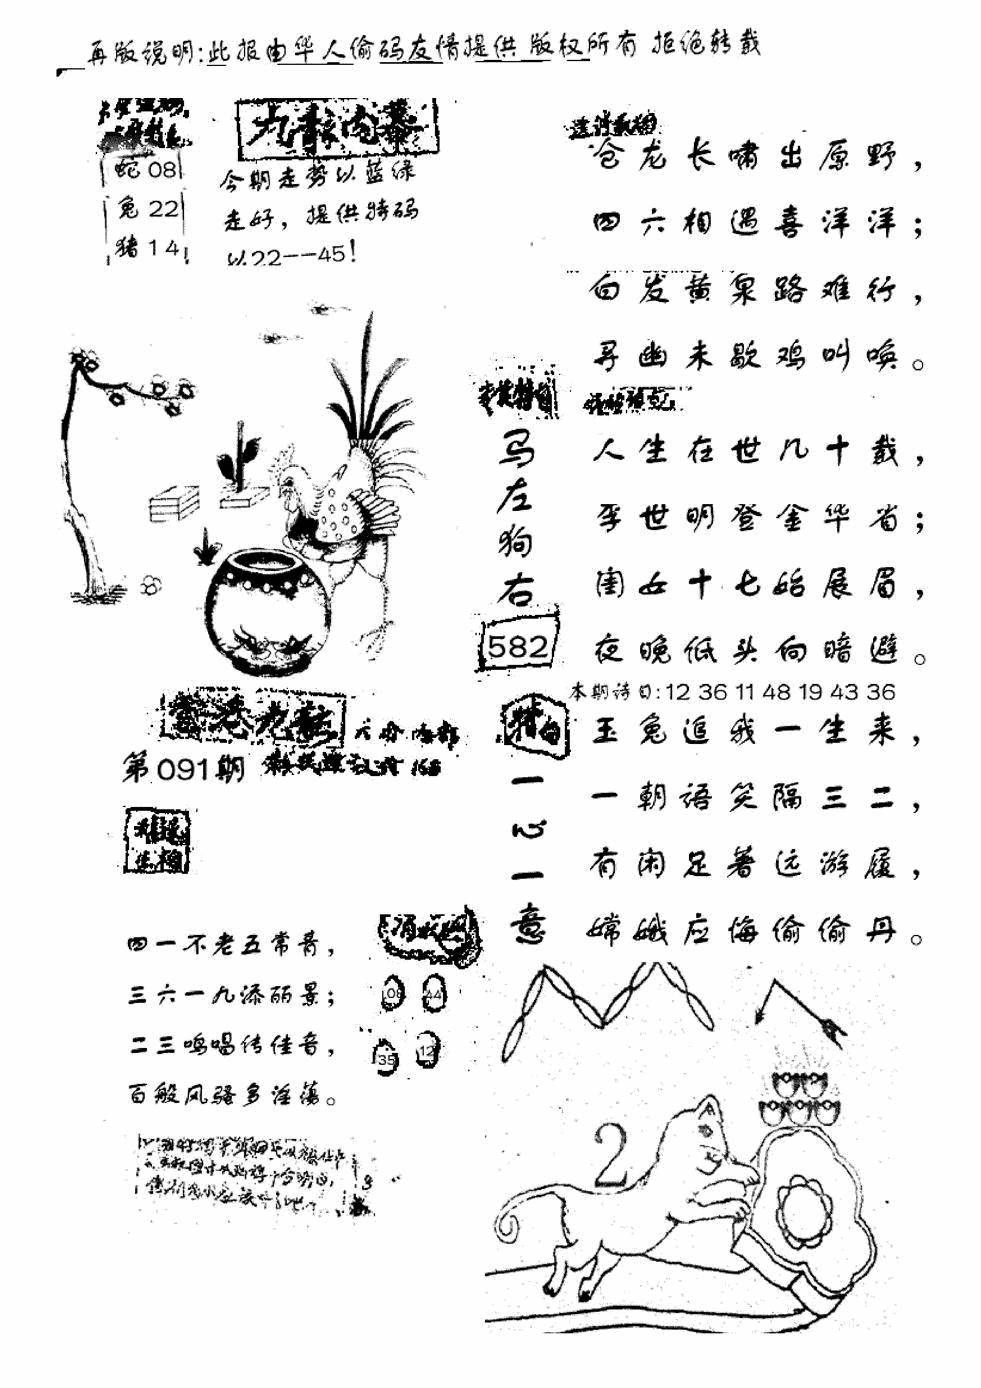 再版说明:此报由华人偷码友情提供 版权所有 拒绝转载
九龍内幕
蛇 08
兔 22
猪 14
今期走势以蓝绿
走好，提供特码
以22--45!
仓龙长啸出原野，
四六相遇喜洋洋；
白发黄泉路难行，
寻幽未歇鸡叫唤。
马左狗右
582
人生在世几十载，
李世明登金华省；
闺女十七始展眉，
夜晚低头向暗避。
本期诗曰:12 36 11 48 19 43 36
一心一意
玉兔追我一生来，
一朝语笑隔三二，
有闲足著远游履，
嫦娥应悔偷偷丹。
香港九龍
第091期
四一不老五常青，
三六一九添丽景；
二三鸣唱传佳音，
百般风骚多淫荡。
08 44
35 12
2